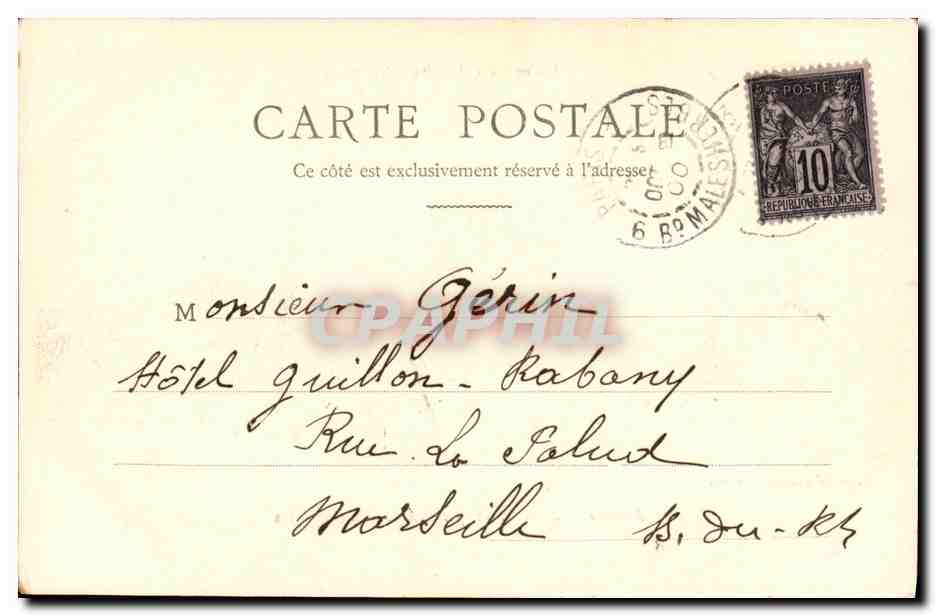 CARTE POSTALE
Ce côté est exclusivement réservé à l'adresse
POSTE
10
REPUBLIQUE FRANÇAISE
PARIS
6 Bd MALESHERBES
00
Monsieur Gérin
CPAPHIL
Hôtel Guillon-Rabany
Rue La Palud
Marseille B. du-Rh